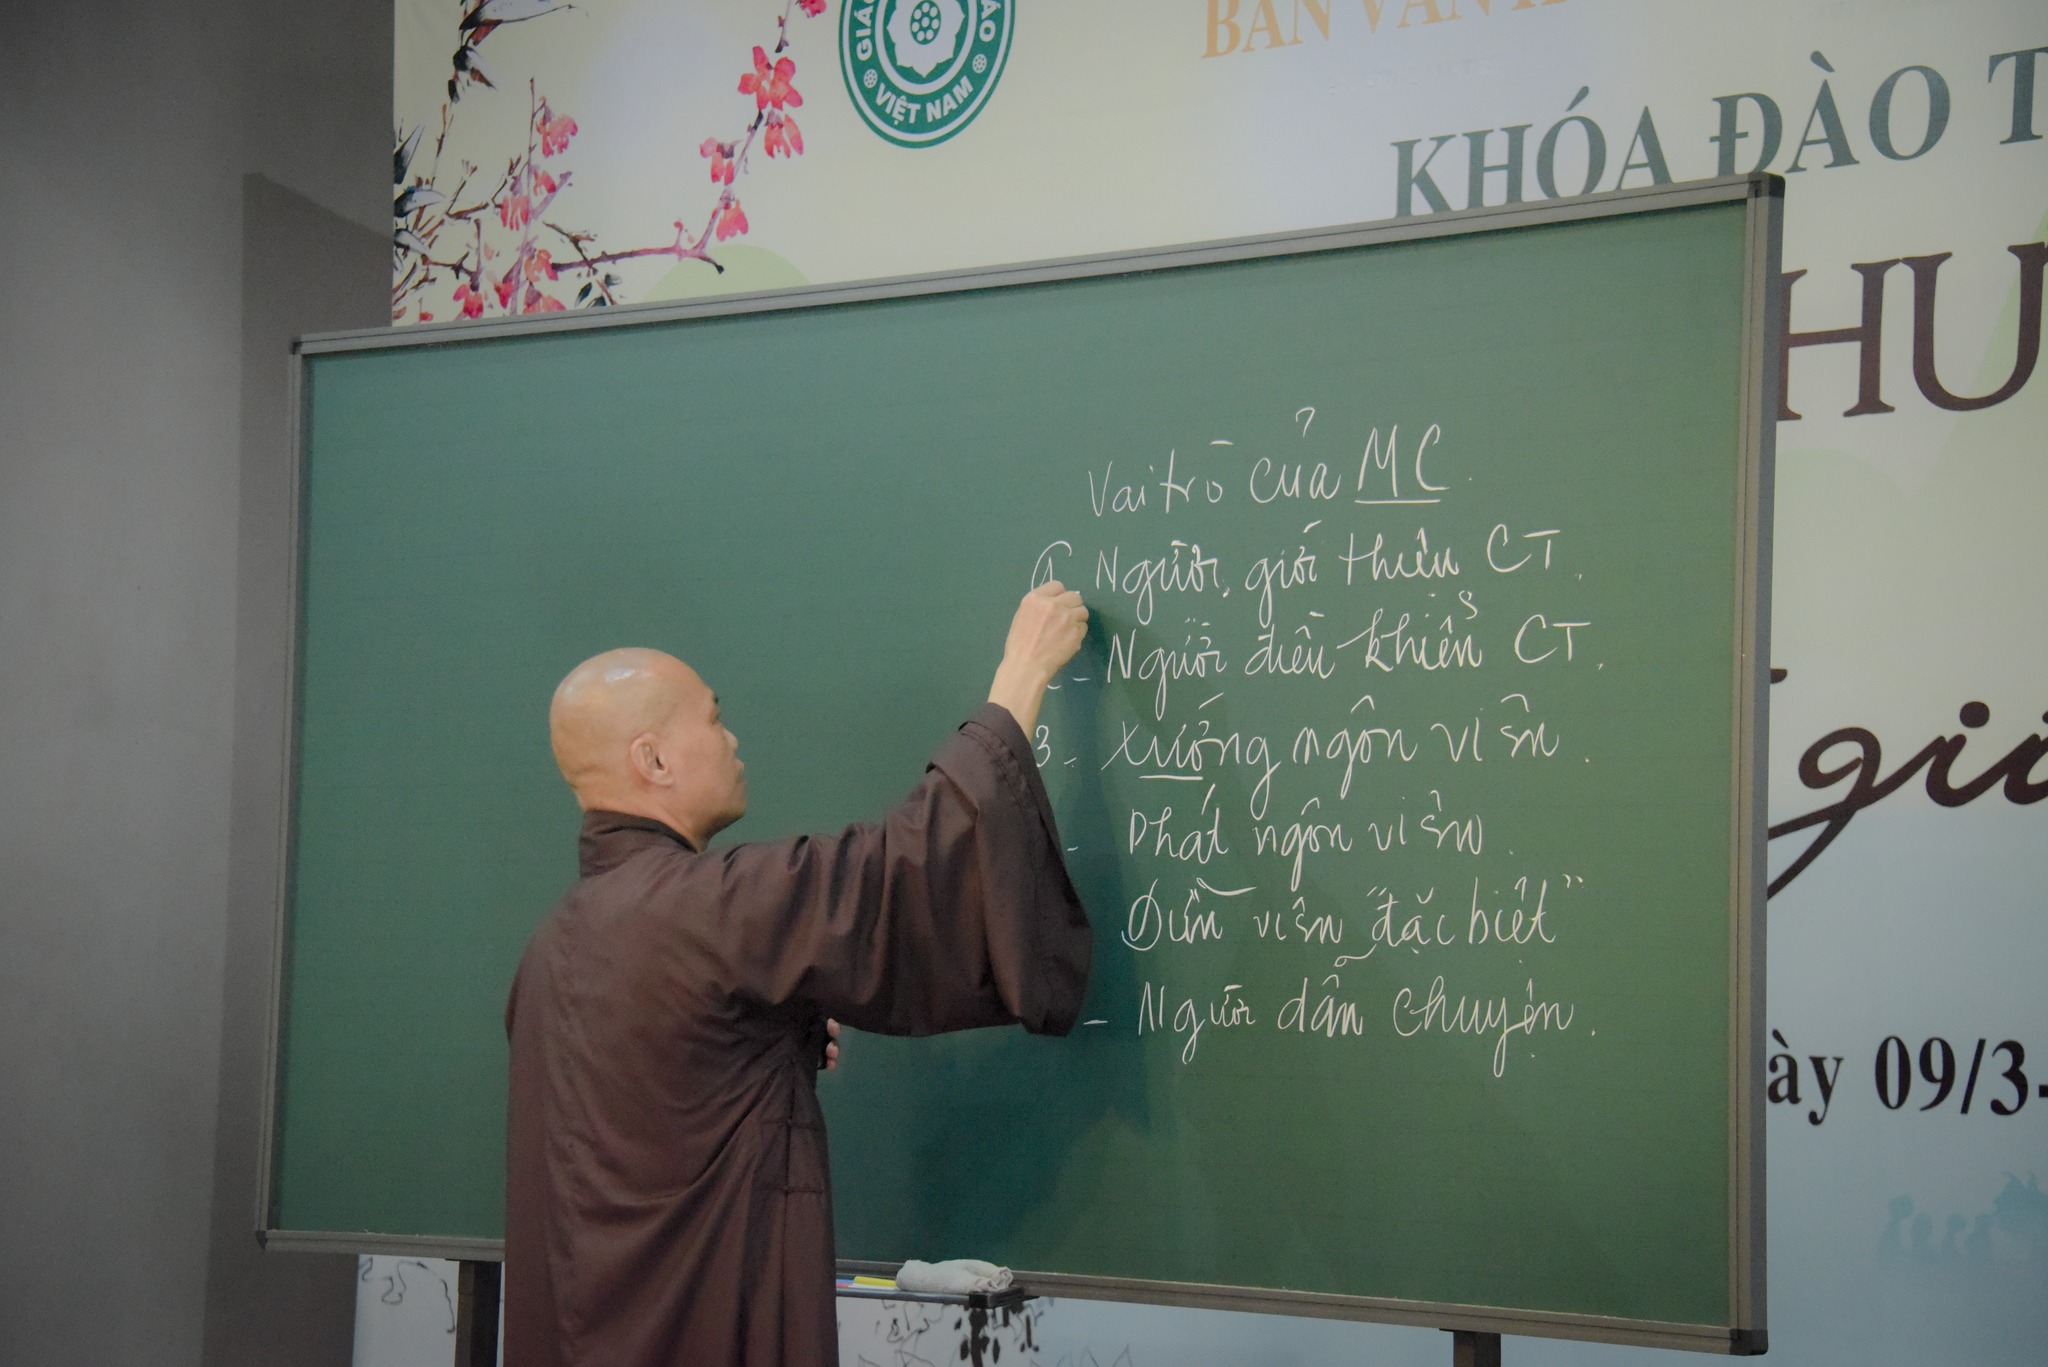 GIÁO
ÁO
VIỆT NAM
BAN VĂN
KHÓA ĐÀO T
HƯ
giả
ày 09/3-
Vai trò của MC.
Người giới thiệu CT.
- Người điều khiển CT.
3- Xướng ngôn viên.
- Phát ngôn viên.
Diễn viên "đặc biệt"
- Người dẫn chuyện.